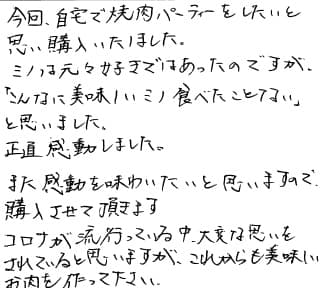 今回、自宅で焼肉パーティーをしたいと
思い購入いたしました。
ミノは元々好きではあったのですが、
「こんなに美味しいミノ食べたことない」
と思いました。
正直感動しました。
また感動を味わいたいと思いますので、
購入させて頂きます
コロナが流行っている中、大変な思いを
されていると思いますが、これからも美味しい
お肉を作って下さい。